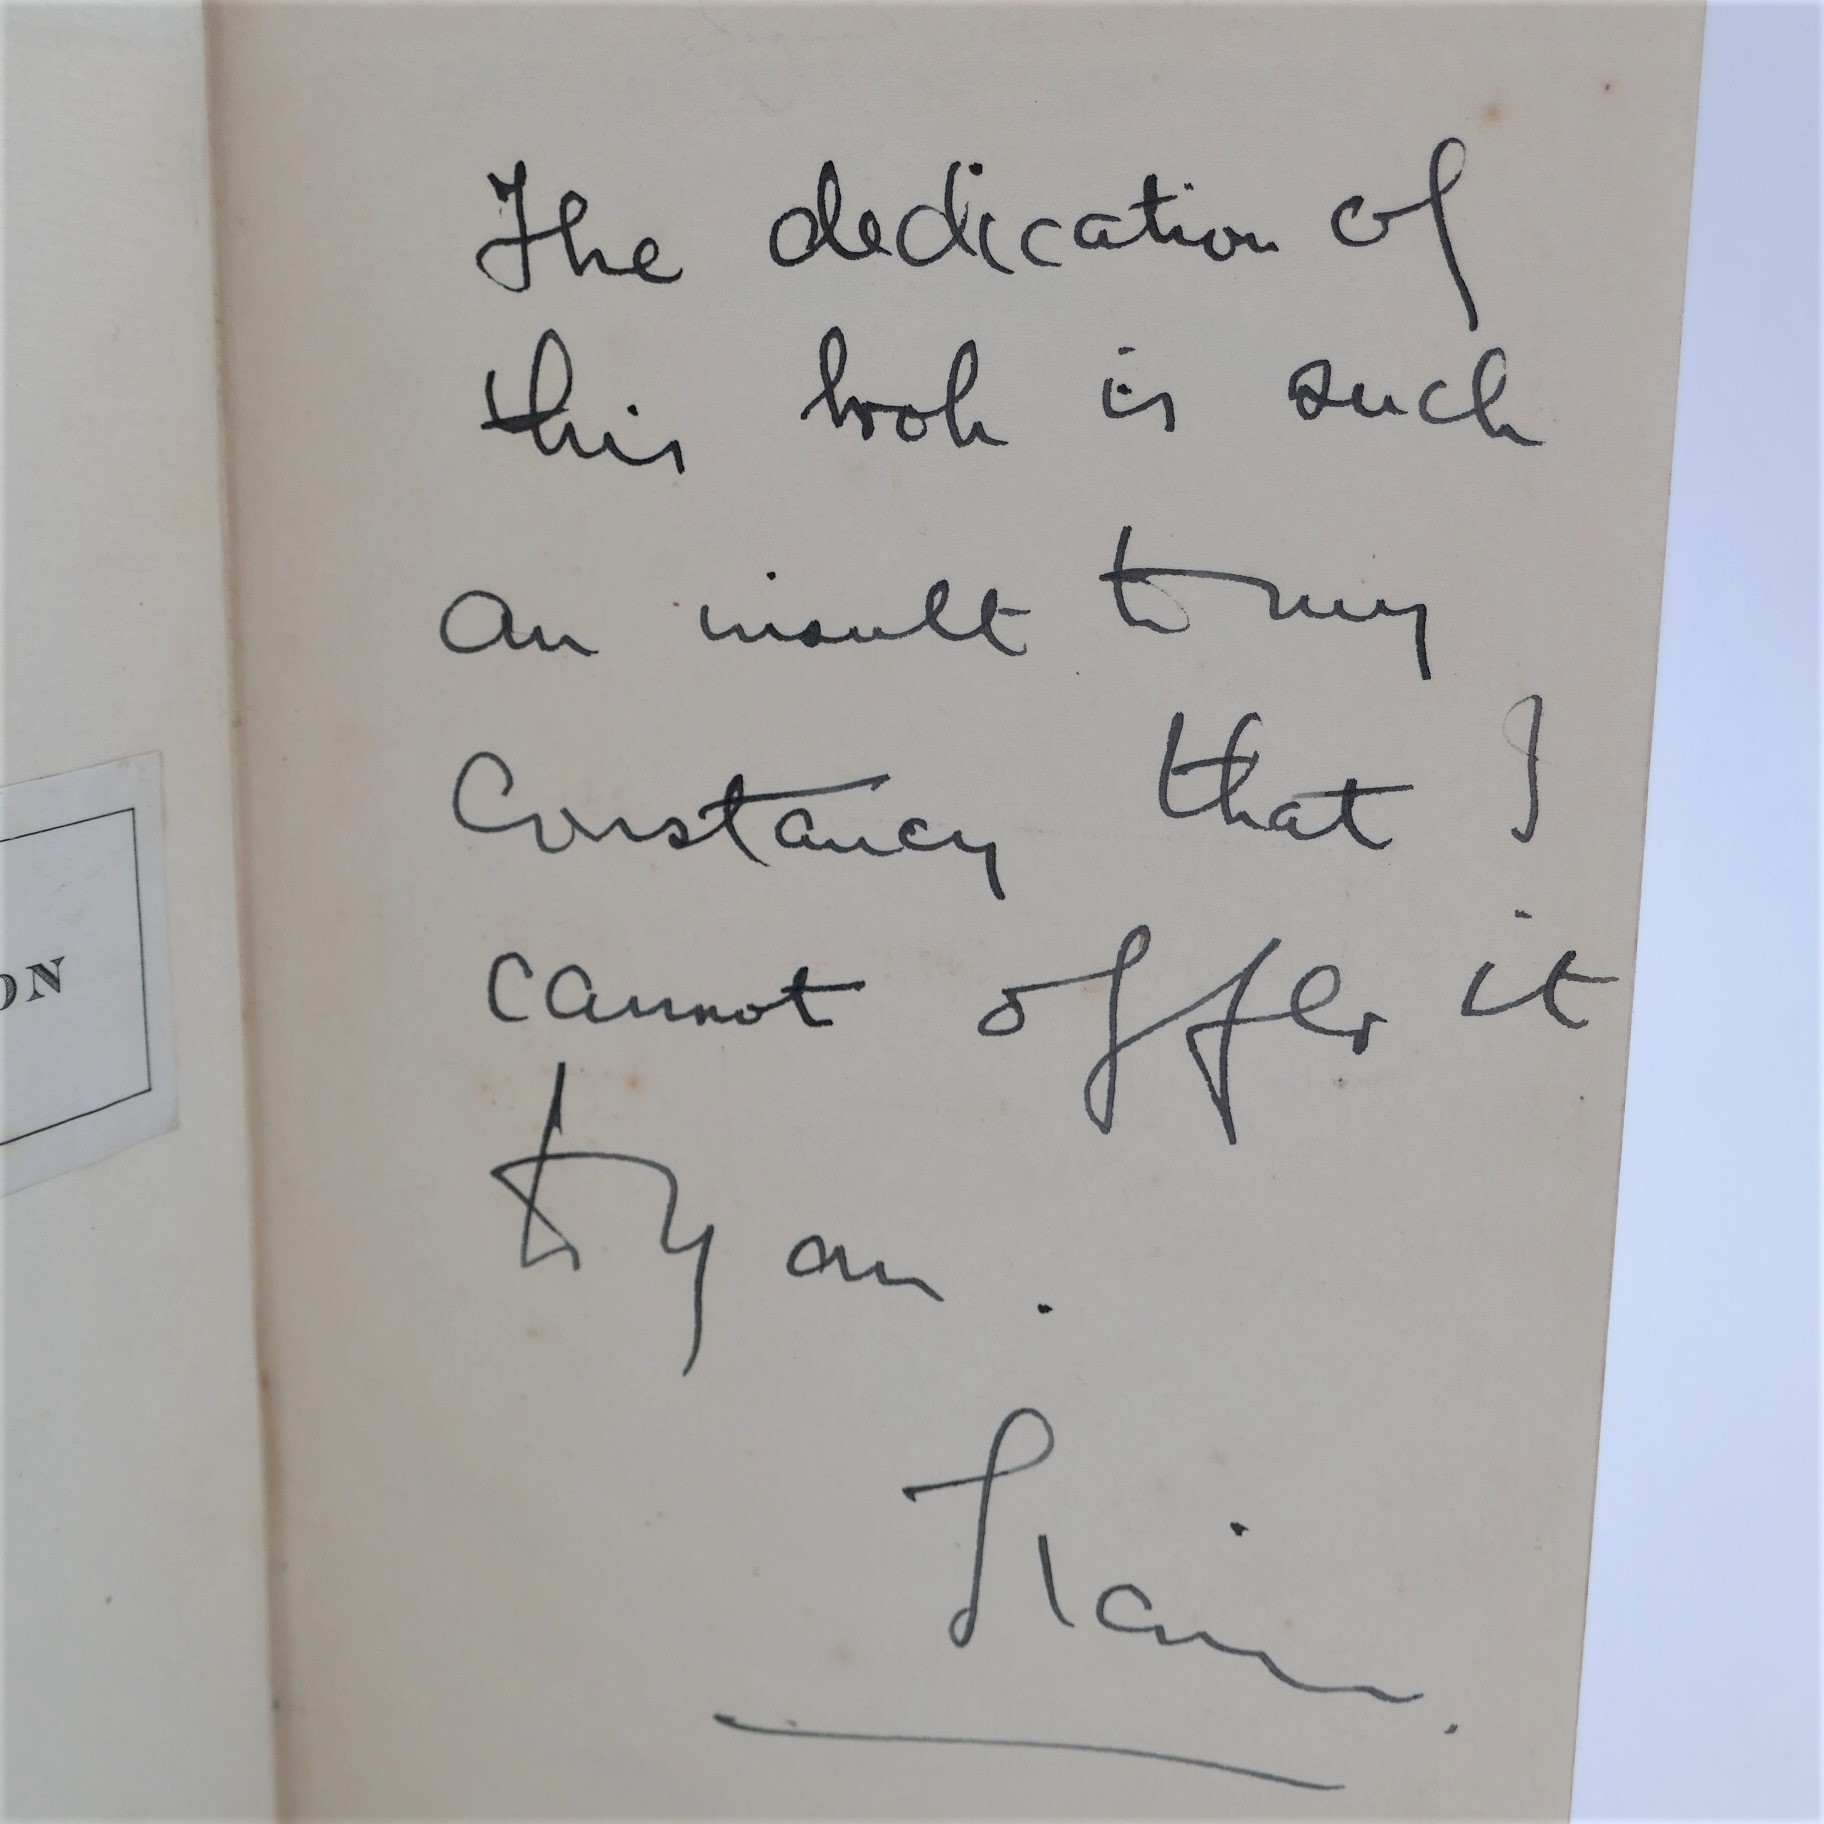 The dedication of
this book is such
an insult to my
Constancy that I
cannot offer it
to you.
ON